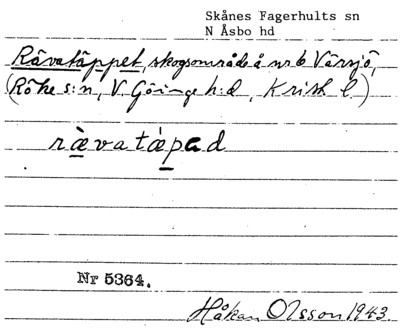 Skånes Fagerhults sn
N Åsbo hd
Råvatåppet, skogsområde å nr 6 Vårsjö,
(Röke s:n, V. Göinge h:d, Krist l)
ræ̀vatápəd
Nr 5364.
Håkan Olsson 1943.